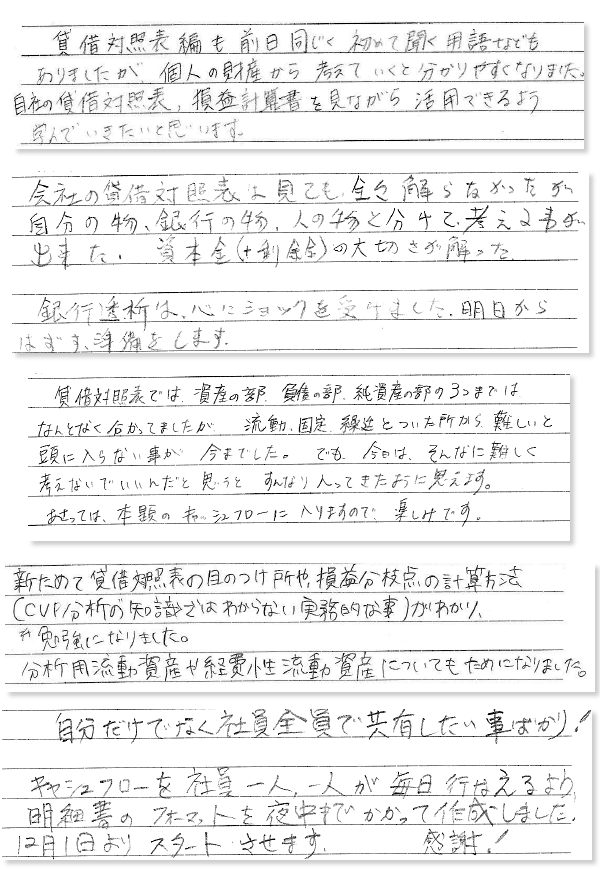 貸借対照表編も前日同じく初めて聞く用語なども
ありましたが、個人の財産から考えていくと分かりやすくなりました。
自社の貸借対照表、損益計算書を見ながら活用できるよう
学んでいきたいと思います。
会社の貸借対照表は見ても、全き解らなかったが
自分の物、銀行の物、人の物と分けて、考える事が
出来た。資本金(+利余金)の大切さが解った。
銀行透析は、心にショックを受けました。明日から
はずす、準備をします。
貸借対照表では、資産の部、負債の部、純資産の部の3つまでは
なんとなく分かってましたが、流動、固定、繰延とついた所から、難しいと
頭に入らない事が今まででした。でも、今日は、そんなに難しく
考えないでいいんだと思うと すんなり入ってきたように思えます。
あさっては、本題のキャッシュフローに入りますので、楽しみです。
新ためて貸借対照表の目のつけ所や、損益分枝点の計算方法
(CVP分析の知識ではわからない実務的な事)がわかり、
勉強になりました。
分析用流動資産や経費性流動資産についてもためになりました。
自分だけでなく社員全員で共有したい事ばかり!
キャシュフローを社員一人、一人が毎日行なえるより、
明細書のフォーマットを夜中までかかって作成しました。
12月1日よりスタートさせます。 感謝!